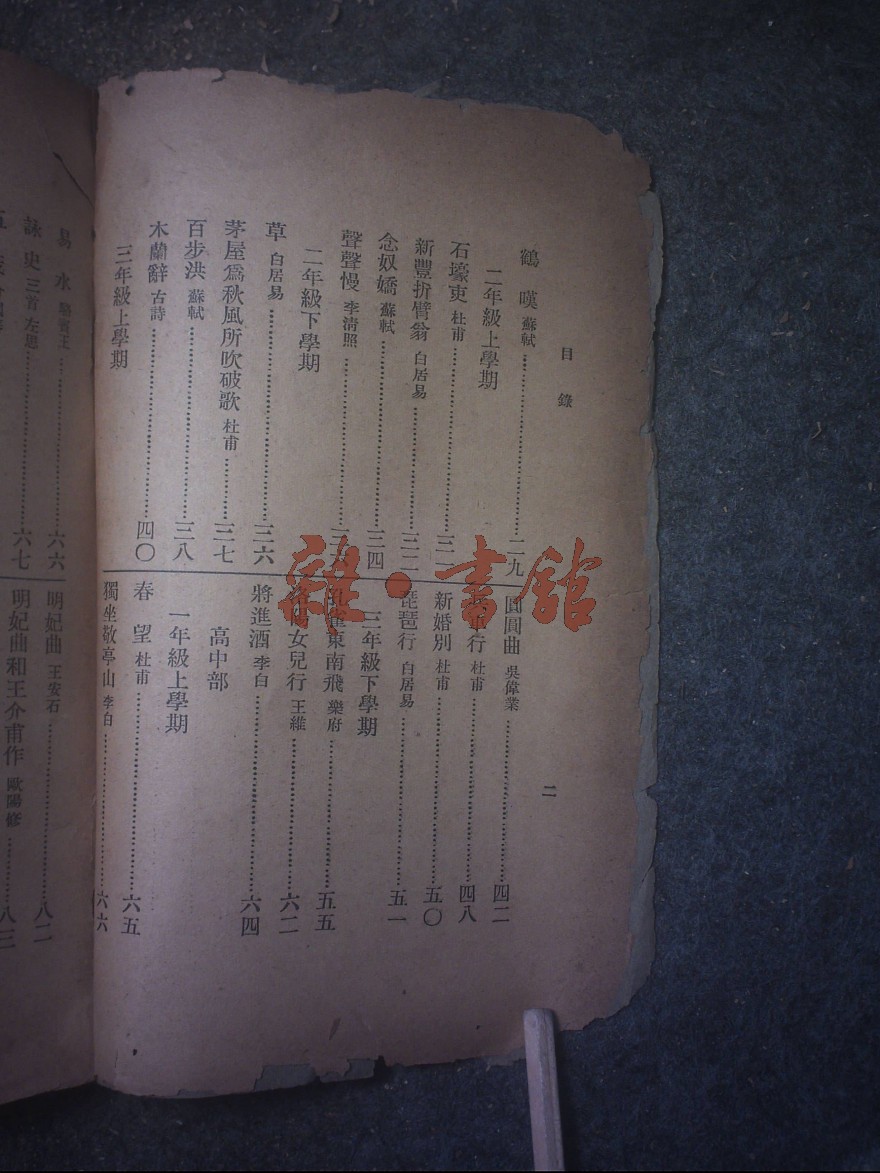 目錄
二
鶴嘆 蘇軾 二九
二年級上學期
石壕吏 杜甫
新豐折臂翁 白居易 三二
念奴嬌 蘇軾 三四
聲聲慢 李清照
二年級下學期
草 白居易 三六
茅屋爲秋風所吹破歌 杜甫 三七
百步洪 蘇軾 三八
木蘭辭 古詩 四〇
三年級上學期
圓圓曲 吳偉業 四二
車行 杜甫 四八
新婚別 杜甫 五〇
琵琶行 白居易 五一
三年級下學期
孔雀東南飛 樂府 五五
洛陽女兒行 王維 六二
將進酒 李白 六四
高中部
一年級上學期
春望 杜甫 六五
獨坐敬亭山 李白 六六
易水 駱賓王 六六
詠史 三首 左思 六七
明妃曲 王安石 八二
明妃曲和王介甫作 歐陽修 八三
雜·書館